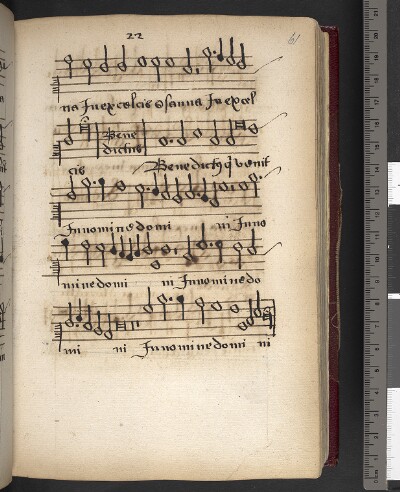 22
61
na In excelcis osanna In excel
Bene
dictus
cis Benedictus q venit
In nomine domi ni In no
mine domi ni In nomine do
mi ni In nomine domi ni